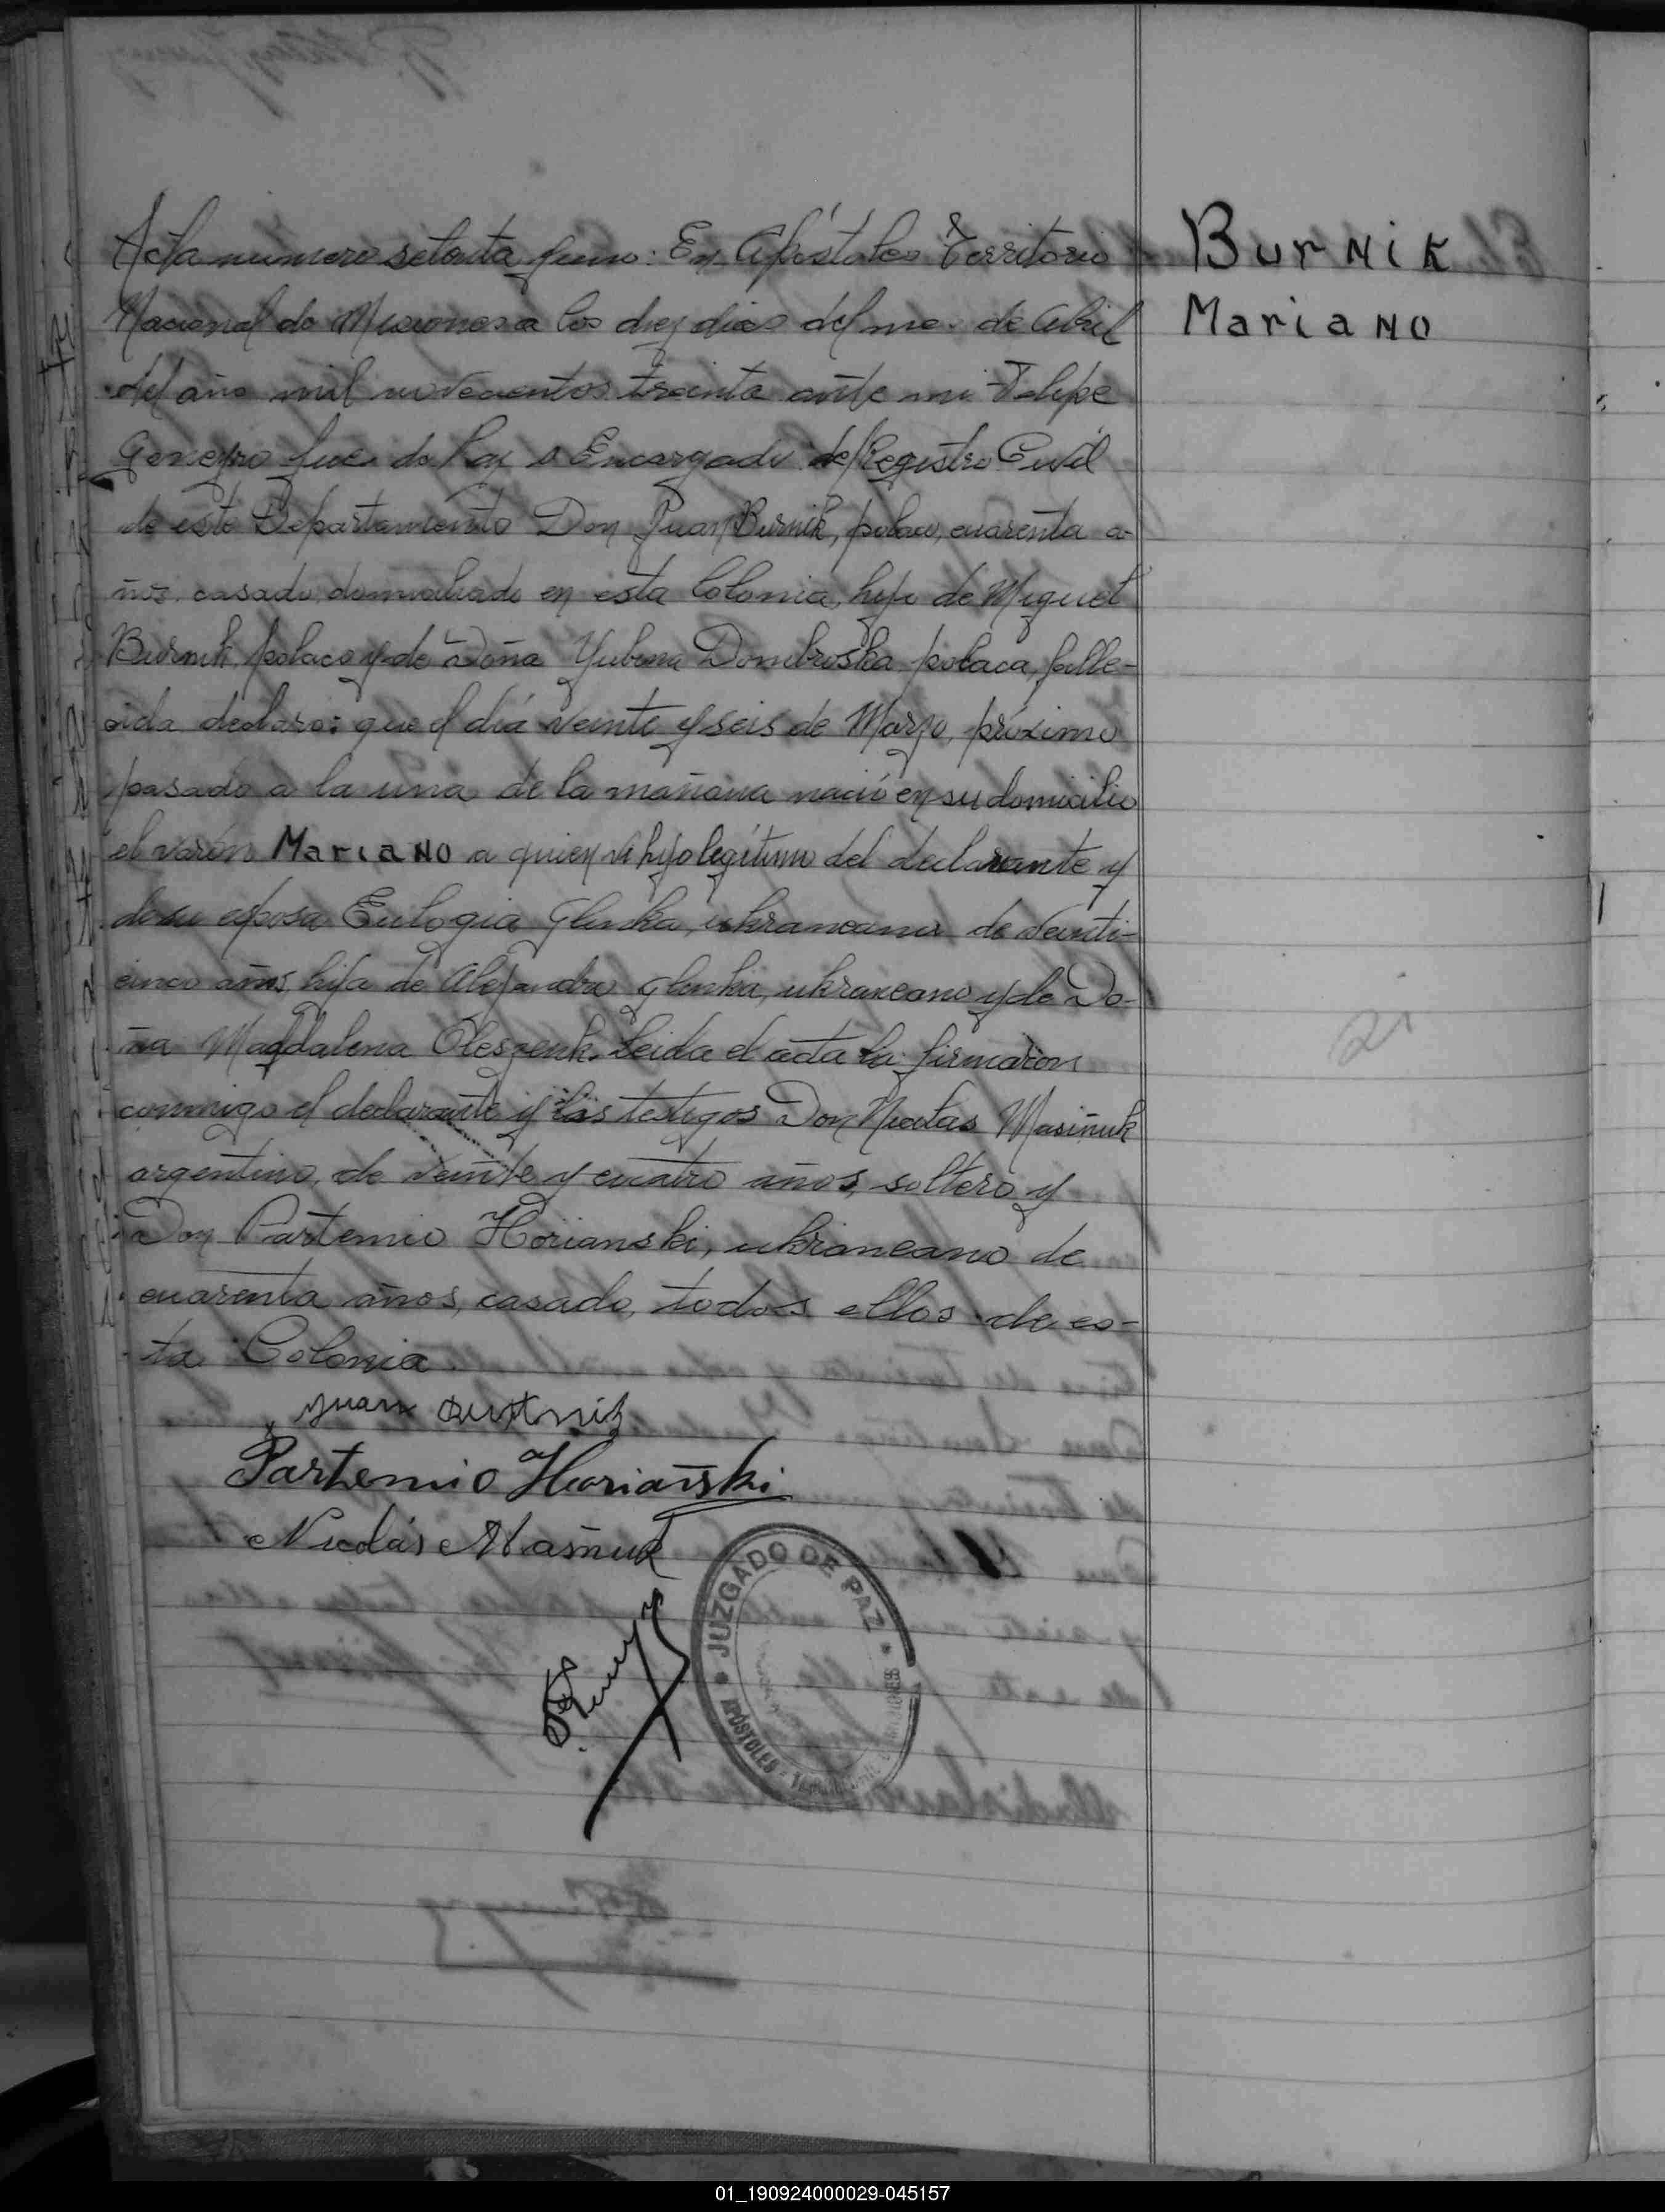 Acta numero setenta y uno: En Apóstoles Territorio
Nacional de Misiones a los diez dias del mes de Abril
del año mil novecientos treinta ante mi Felipe
Geneyro Juez de Paz e Encargado del Registro Civil
de este Departamento Don Juan Burnik, polaco, cuarenta a-
ños casado, domiciliado en esta Colonia, hijo de Miguel
Burnik, polaco y de Doña Yubena Dombroska, polaca, falle-
cida declaro: que el diá veinte y seis de Marzo, próximo
pasado a la una de la mañana nació en su domicilio
el varón Mariano a quien vi hijo legítimo del declarante y
de su esposa Eulogia Glenka, ukraneana de veinti-
cinco años, hija de Alejandro Glenka, ukraneano y de Do-
ña Magdalena Oleszenk. Leida el acta la firmaron
conmigo el declarante y los testigos Don Nicolas Masiñuk
argentino, de veinte y cuatro años, soltero y
Don Partemio Horianski, ukraneano de
cuarenta años, casado, todos ellos de es-
ta Colonia.
Juan
Partemio Horianski
Nicolás Masñuk
JUZGADO DE PAZ
APÓSTOLES
Burnik
Mariano
21
01_190924000029-045157